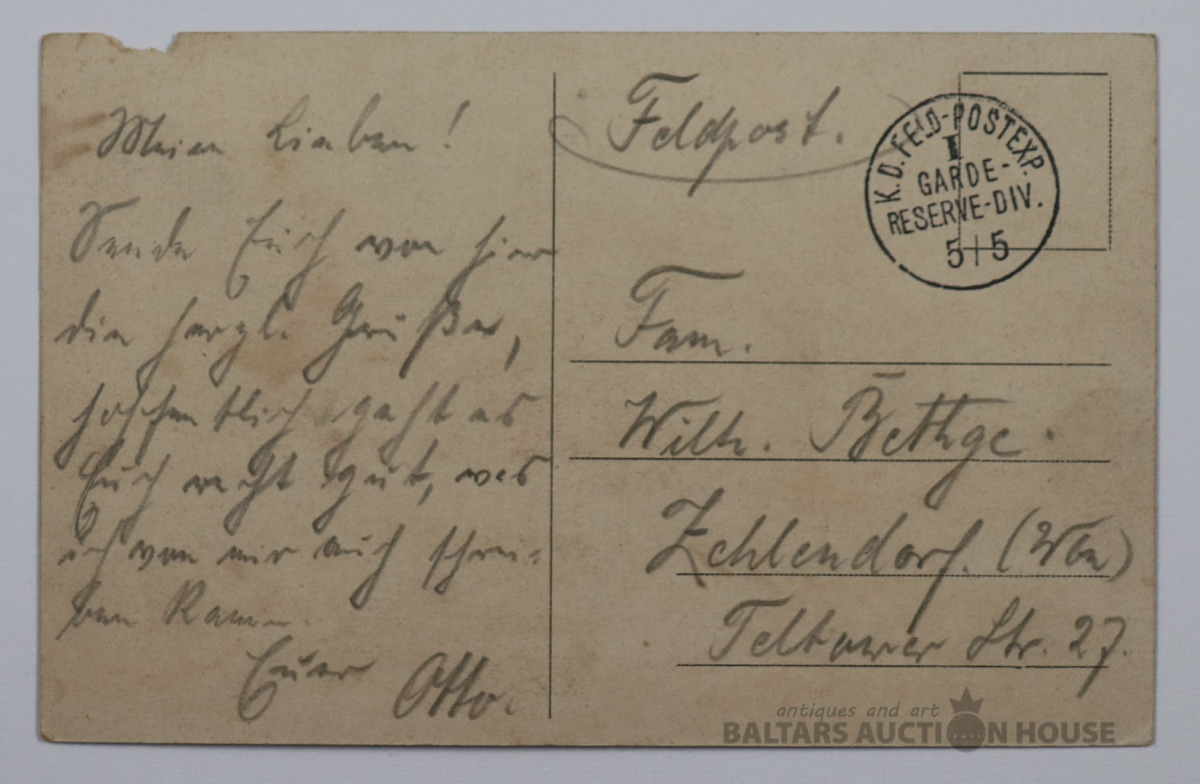 Meine Lieben!
Sende Euch von hier
die herzl. Grüße,
hoffentlich geht es
Euch recht gut, was
ich von mir auch schrei-
ben kann.
Euer Otto.
Feldpost.
K.D. FELD-POSTEXP.
I
GARDE-
RESERVE-DIV.
5/5
Fam.
Wilh. Bethge.
Zehlendorf. (Wbn)
Teltower Str. 27.
antiques and art
BALTARS AUCTION HOUSE